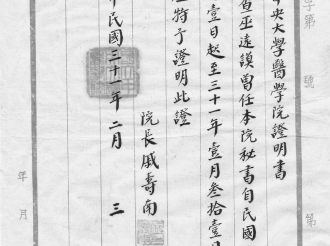 字第 號
央大學醫學院證明書
查巫遠謨曾任本院祕書自民國
壹日起至三十一年壹月叁拾壹日
特予證明此證
院長戚壽南
中民國三十一年二月 三
年 月
第